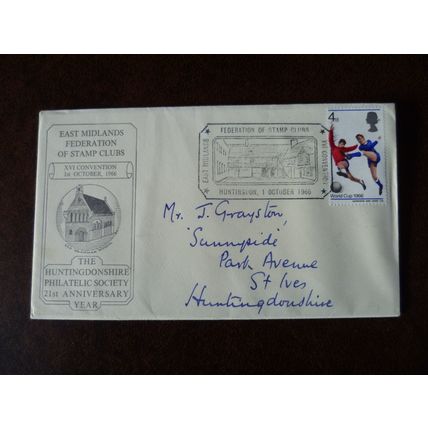 EAST MIDLANDS
FEDERATION
OF STAMP CLUBS
XVI CONVENTION
1st OCTOBER, 1966
THE
HUNTINGDONSHIRE
PHILATELIC SOCIETY
21st ANNIVERSARY
YEAR
FEDERATION OF STAMP CLUBS
EAST MIDLANDS
XVI CONVENTION
HUNTINGDON, 1 OCTOBER 1966
4D
World Cup 1966
Mr. J. Grayston,
'Sunnyside'
Park Avenue
St Ives
Huntingdonshire